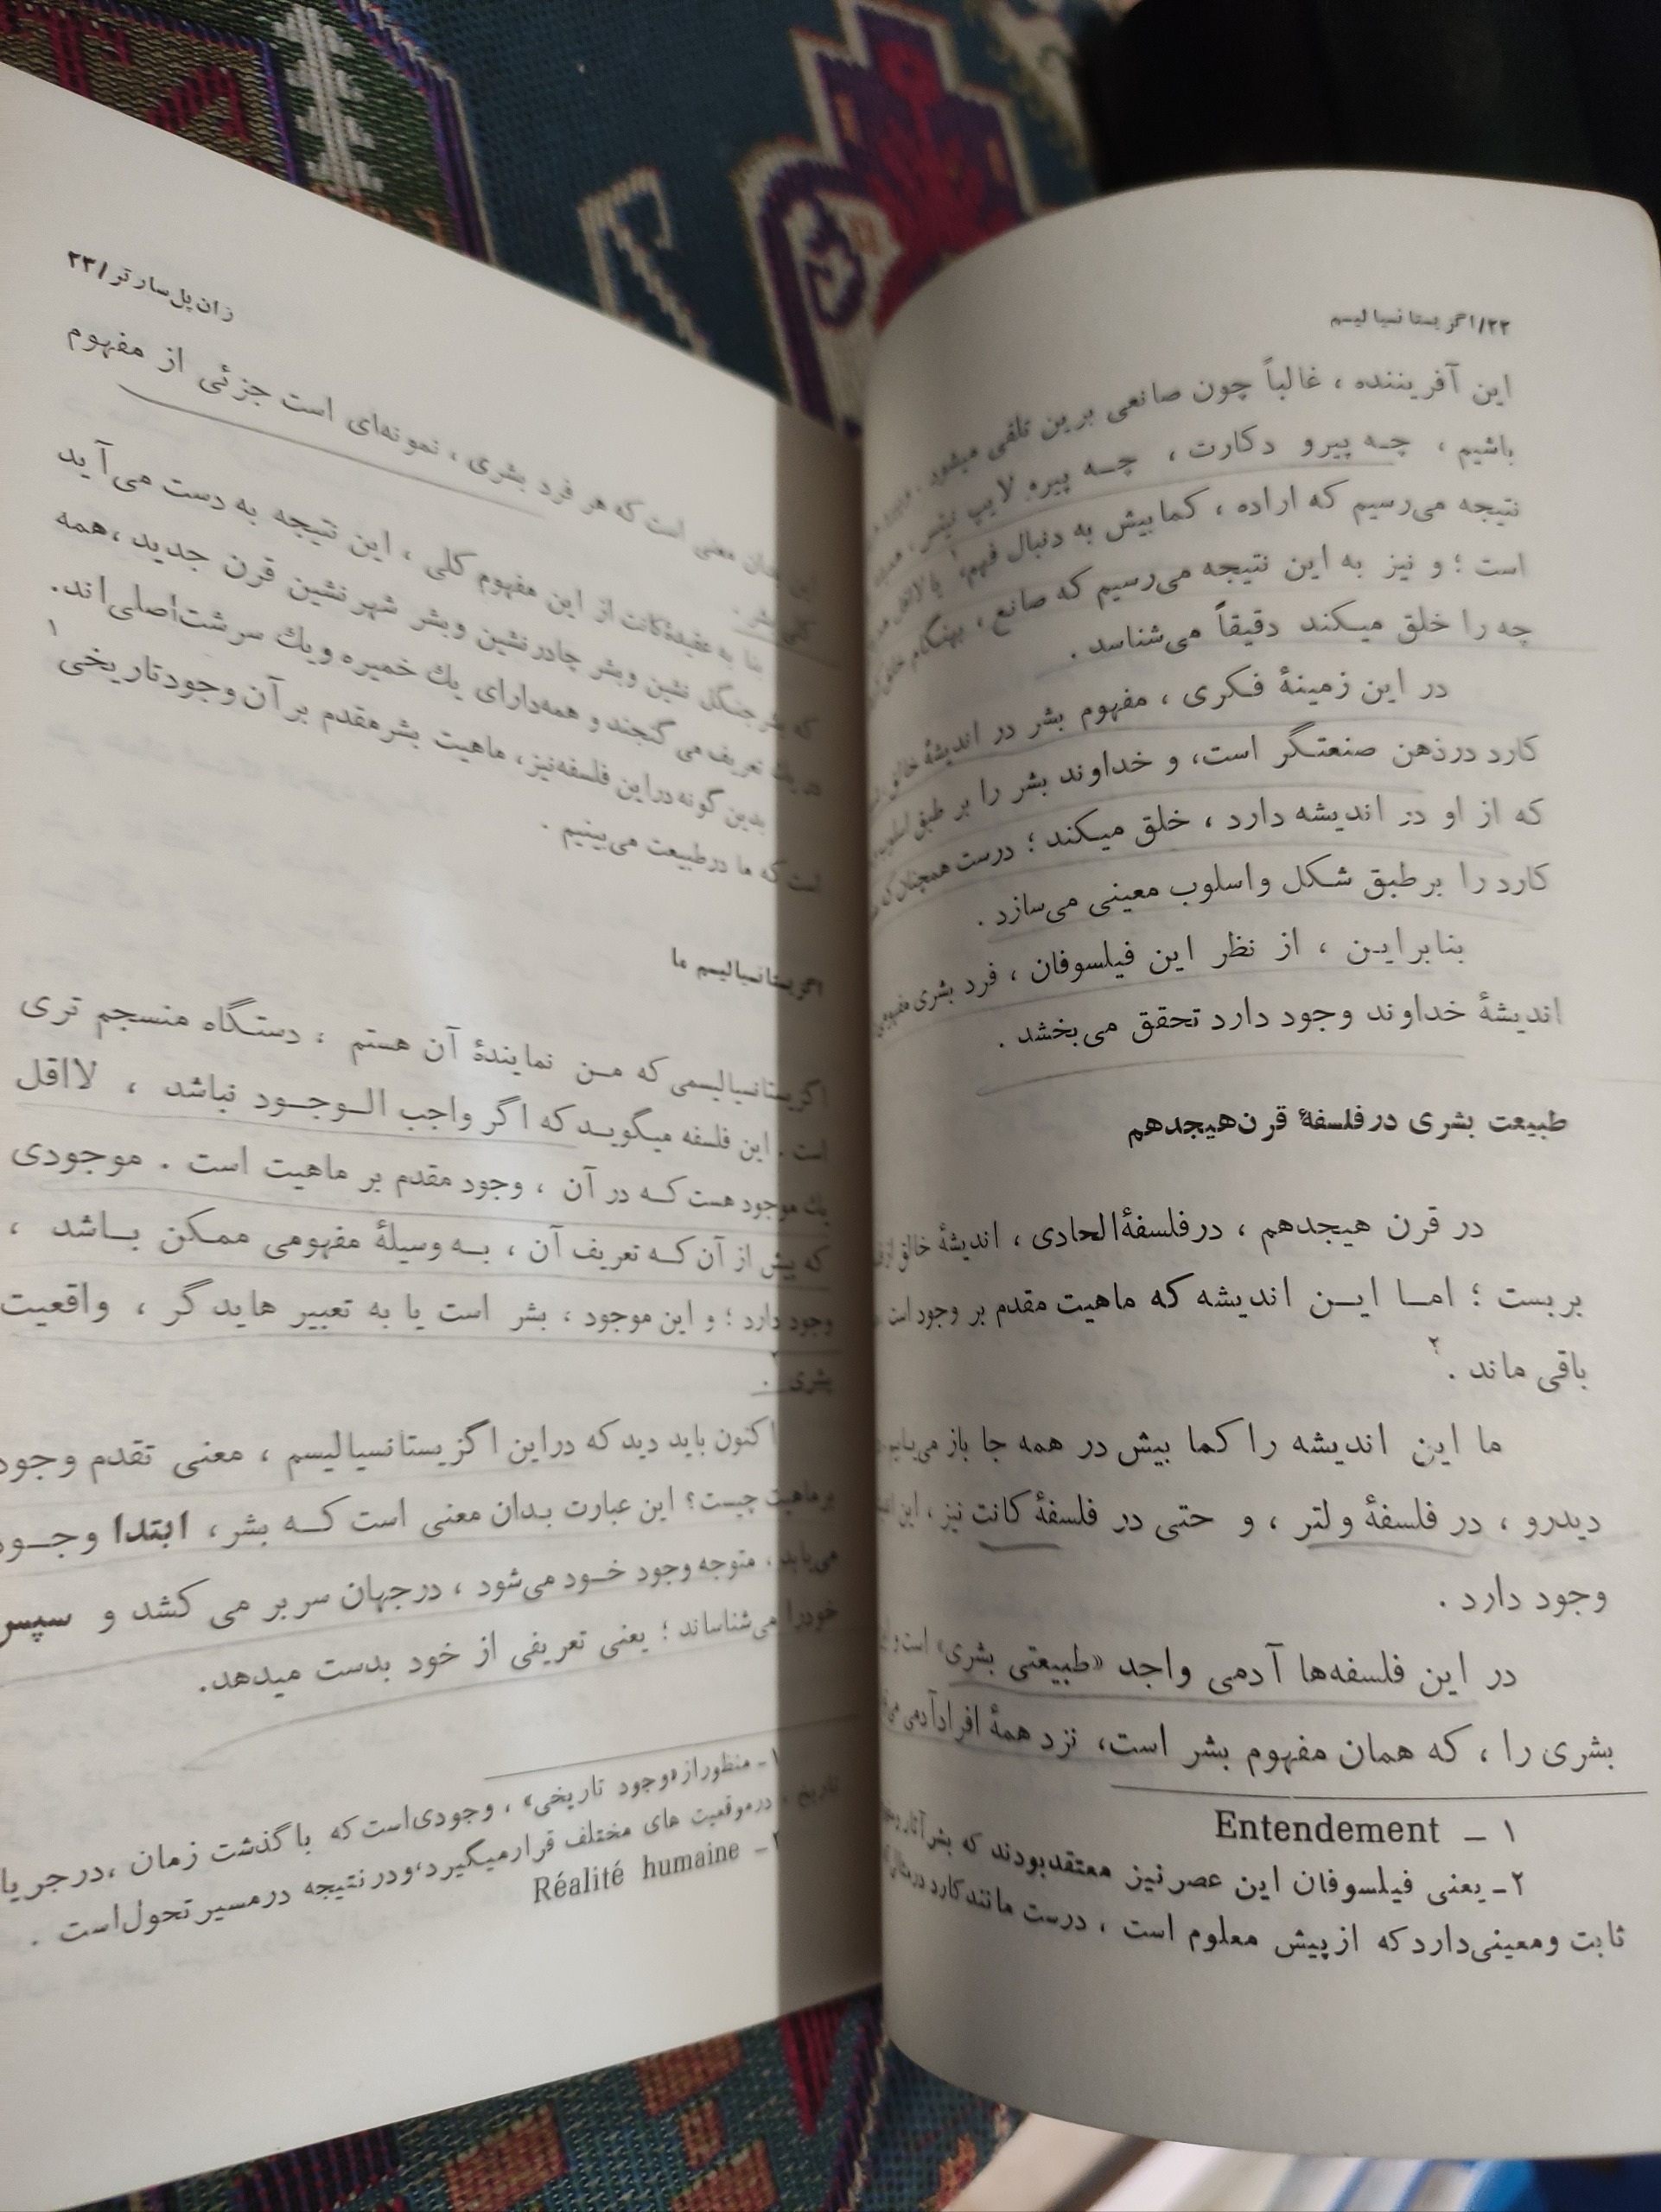 ۲۲/اگزیستانسیالیسم
این آفریننده ، غالباً چون صانعی برین تلقی میشود .
باشیم ، چـه پیرو دکارت ، چـه پیرو لایپ نیتس ، همیشه
نتیجه می‌رسیم که اراده ، کمابیش به دنبال فهم۱ یا لااقل
است ؛ و نیز به این نتیجه می‌رسیم که صانع ، بهنگام خلق
چه را خلق میـکند دقیقاً می‌شناسد .
در این زمینهٔ فـکری ، مفهوم بشر در اندیشهٔ خالق
کارد درذهن صنعتـگر است، و خداوند بشر را بر طبق اسلوب
که از او در اندیشه دارد ، خلق میـکند ؛ درست همچنان که
کارد را برطبق شـکل واسلوب معینی می‌سازد .
بنابرایـن ، از نظر این فیلسوفان ، فرد بشری مفهومی
اندیشهٔ خداوند وجود دارد تحقق می‌بخشد .
طبیعت بشری درفلسفهٔ قرن‌هیجدهم
در قرن هیجدهم ، درفلسفهٔ‌الحادی ، اندیشهٔ خالق
بربست ؛ امـا ایـن اندیشه که ماهیت مقدم بر وجود است
باقی ماند .۲
ما این اندیشه را کما بیش در همه جا باز می‌یابیم
دیدرو ، در فلسفهٔ ولتر ، و حتی در فلسفهٔ کانت نیز ، این
وجود دارد .
در این فلسفه‌ها آدمی واجد «طبیعتی بشری» است و
بشری را ، که همان مفهوم بشر است، نزد همهٔ افرادآدمی
۱ – Entendement
۲ـ یعنی فیلسوفان این عصرنیز معتقدبودند که بشر آثار
ثابت ومعینی‌داردکه ازپیش معلوم است ، درست مانندکارد درمثال
ژان‌پل‌سارتر/۲۳
بدان معنی است که هر فرد بشری ، نمونه‌ای است جزئی از مفهوم
کلی بشر .
بنا به عقیدهٔ‌کانت از این مفهوم کلی ، این نتیجه به دست می‌آید
که بشر جنگل نشین وبشر چادرنشین وبشر شهرنشین قرن جدید ،همه
در یك تعریف می گنجند و همه‌دارای یك خمیره ویك سرشت‌اصلی‌اند.
بدین گونه دراین فلسفه‌نیز، ماهیت بشرمقدم برآن وجودتاریخی۱
است که ما درطبیعت می‌بینیم .
اگزیستانسیالیسم ما
اگزیستانسیالیسمی که مـن نمایندهٔ آن هستم ، دستـگاه منسجم تری
است . این فلسفه میگویـد که اگر واجب الـوجـود نباشد ، لااقل
یك موجود هست کـه در آن ، وجود مقدم بر ماهیت است . موجودی
که پیش از آن کـه تعریف آن ، بـه وسیلهٔ مفهومی ممـکن بـاشد ،
وجود دارد ؛ و این موجود ، بشر است یا به تعبیر هایدگر ، واقعیت
بشری۲ .
اکنون باید دید که دراین اگزیستانسیالیسم ، معنی تقدم وجود
برماهیت چیست؟ این عبارت بـدان معنی است کـه بشر، ابتدا وجـود
می‌یابد ، متوجه وجود خـود می‌شود ، درجهان سر بر می کشد و سپس
خودرا می‌شناساند ؛ یعنی تعریفی از خود بدست میدهد.
۱ـ منظوراز«وجود تاریخی» ، وجودی‌است که باگذشت زمان ،درجریان
تاریخ ، درموقعیت های مختلف قرارمیگیرد،ودرنتیجه درمسیرتحول‌است .
۲ـ Réalité humaine